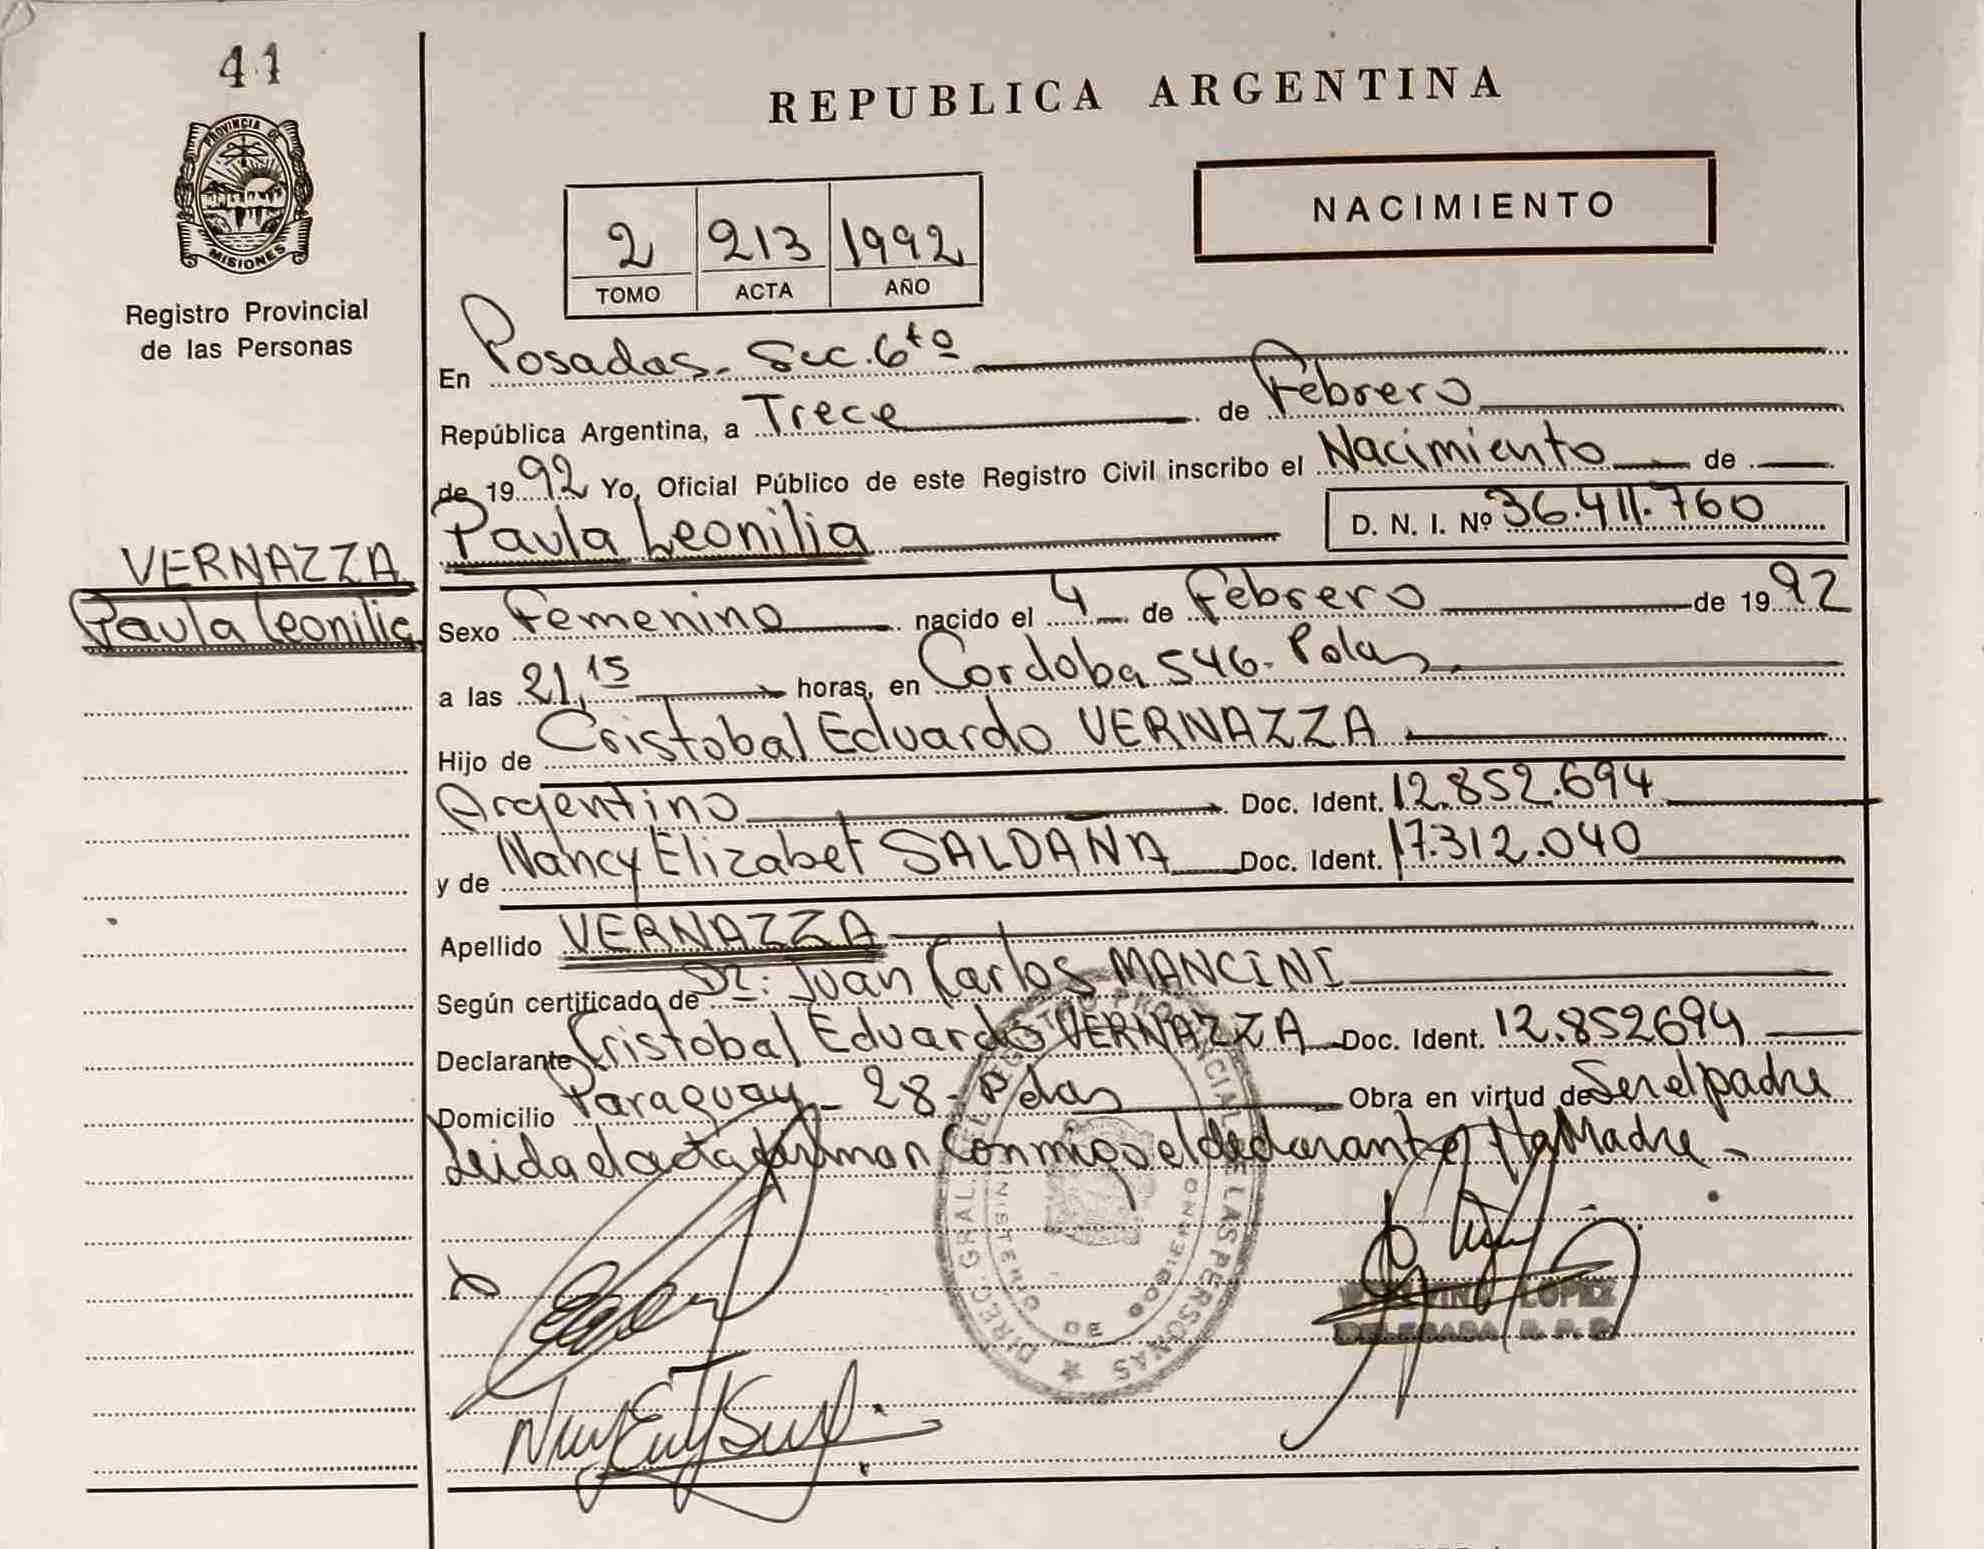 41
PROVINCIA DE
MISIONES
Registro Provincial
de las Personas
VERNAZZA
Paula Leonilia
REPUBLICA ARGENTINA
NACIMIENTO
2 213 1992
TOMO ACTA AÑO
En Posadas - Sec. 6ta
República Argentina, a Trece de Febrero
de 1992 Yo, Oficial Público de este Registro Civil inscribo el Nacimiento de
Paula Leonilia D. N. I. Nº 36.411.760
Sexo Femenino nacido el 4 de Febrero de 1992
a las 21,15 horas, en Cordoba 546 - Pdas
Hijo de Cristobal Eduardo VERNAZZA
Argentino Doc. Ident. 12.852.694
y de Nancy Elizabet SALDAÑA Doc. Ident. 17.312.040
Apellido VERNAZZA
Según certificado de Dr: Juan Carlos MANCINI
Declarante Cristobal Eduardo VERNAZZA Doc. Ident. 12.852694
Domicilio Paraguay - 28 - Pdas Obra en virtud de Ser el padre
Leida el acta firman Conmigo el declarante y la Madre -
DIREC. GRAL. DEL REGISTRO PROVINCIAL DE LAS PERSONAS
MINISTERIO DE GOBIERNO
LOPEZ
DELEGADA R. P. P.